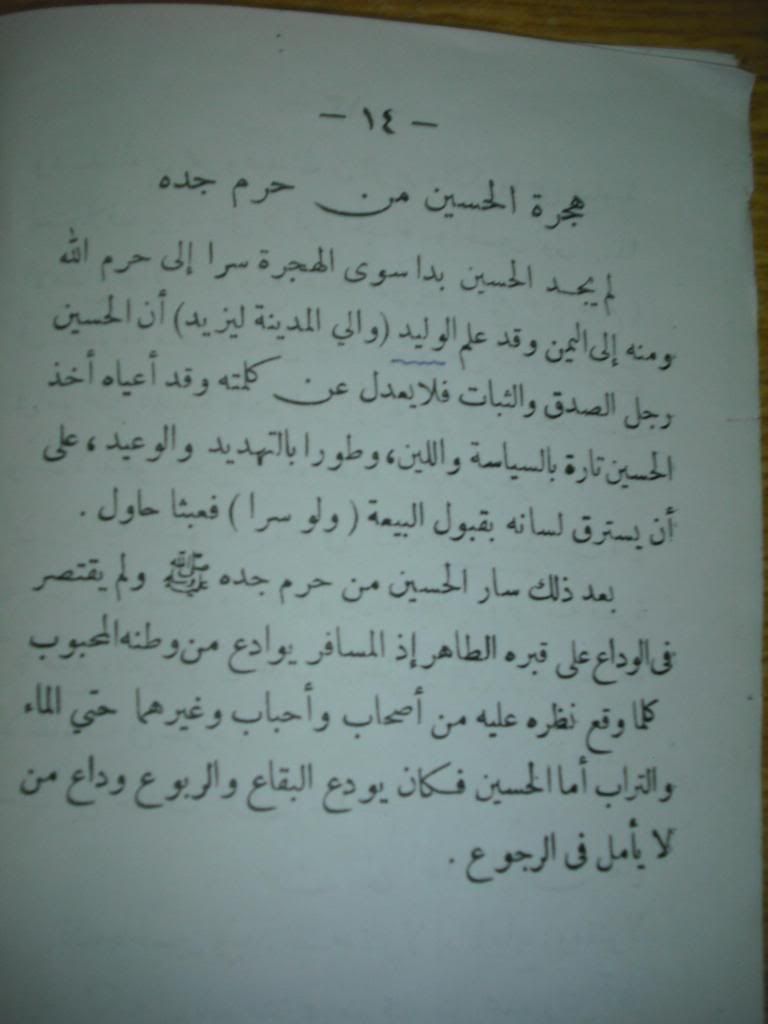 - ١٤ -
هجرة الحسين من حرم جده
لم يجد الحسين بدا سوى الهجرة سرا إلى حرم الله
ومنه إلى اليمن وقد علم الوليد (والي المدينة ليزيد) أن الحسين
رجل الصدق والثبات فلا يعدل عن كلمته وقد أعياه أخذ
الحسين تارة بالسياسة واللين، وطورا بالتهديد والوعيد، على
أن يسترق لسانه بقبول البيعة (ولو سرا) فعبثا حاول.
بعد ذلك سار الحسين من حرم جده ﷺ ولم يقتصر
فى الوداع على قبره الطاهر إذ المسافر يوادع من وطنه المحبوب
كلما وقع نظره عليه من أصحاب وأحباب وغيرهما حتي الماء
والتراب أما الحسين فكان يودع البقاع والربوع وداع من
لا يأمل فى الرجوع.